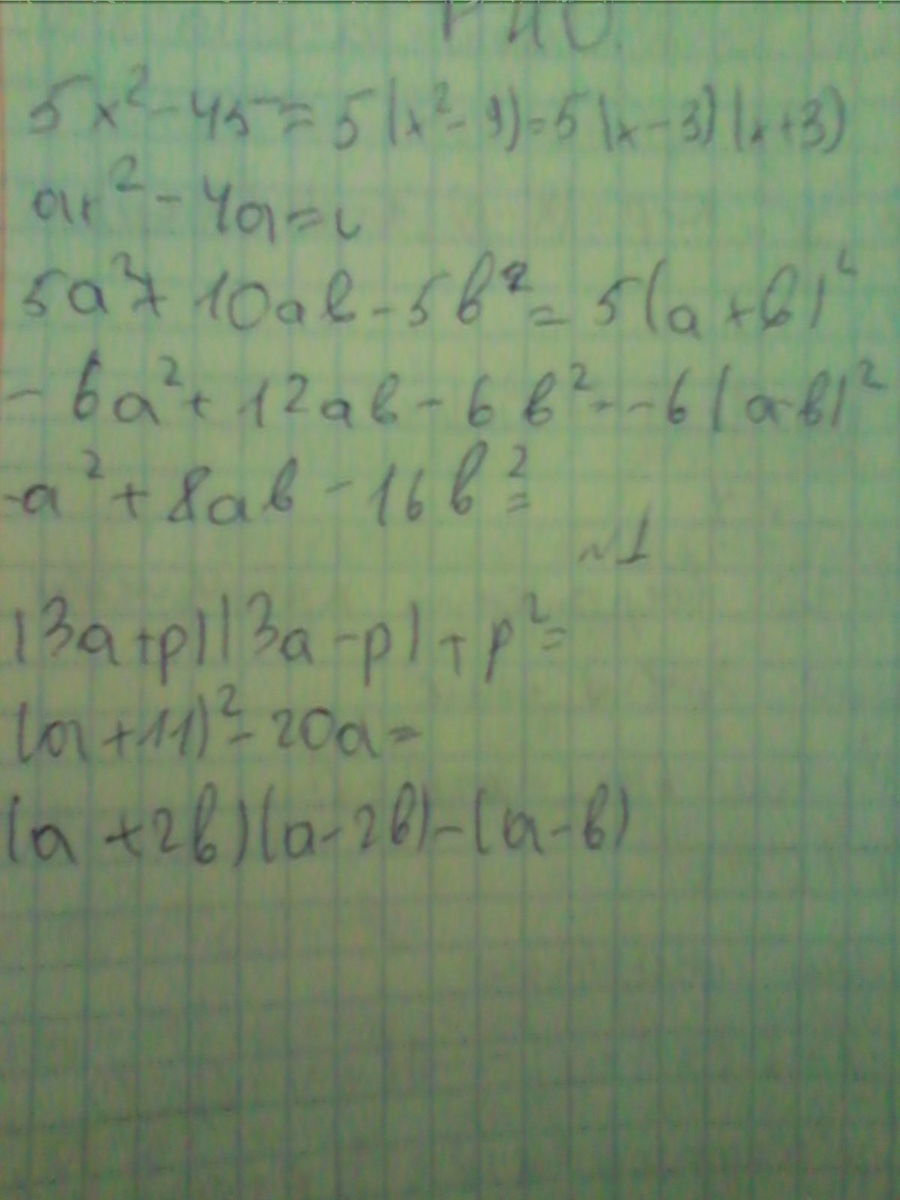 5x² - 45 = 5(x² - 9) = 5(x - 3)(x + 3)
ar² - 4a =
5a² + 10ab - 5b² = 5(a + b)²
- 6a² + 12ab - 6b² = -6(a-b)²
-a² + 8ab - 16b² =
~1
(3a + p)(3a - p) + p² =
(a + 11)² - 20a =
(a + 2b)(a - 2b) - (a - b)